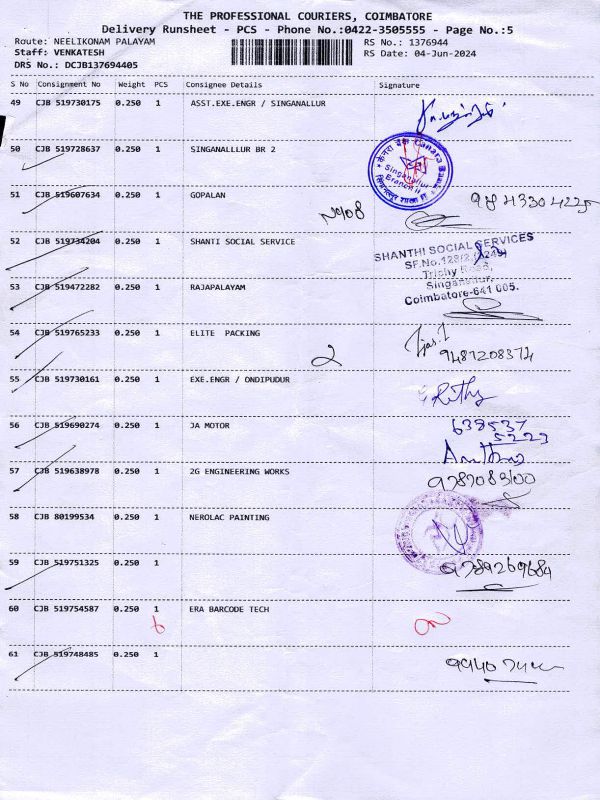 THE PROFESSIONAL COURIERS, COIMBATORE
Delivery Runsheet - PCS - Phone No.:0422-3505555 - Page No.:5
Route: NEELIKONAM PALAYAM RS No.: 1376944
Staff: VENKATESH RS Date: 04-Jun-2024
DRS No.: DCJB137694405
S No Consignment No Weight PCS Consignee Details Signature
49 CJB 519730175 0.250 1 ASST.EXE.ENGR / SINGANALLUR
50 CJB 519728637 0.250 1 SINGANALLLUR BR 2
केनरा बैंक Canara
Singanallur
Branch II
51 CJB 519607634 0.250 1 GOPALAN
52 CJB 519734204 0.250 1 SHANTI SOCIAL SERVICE
SHANTHI SOCIAL SERVICES
Trichy Road,
Singanallur,
Coimbatore-641 005.
53 CJB 519472282 0.250 1 RAJAPALAYAM
54 CJB 519765233 0.250 1 ELITE PACKING
2 9487208374
55 CJB 519730161 0.250 1 EXE.ENGR / ONDIPUDUR
Rithy
56 CJB 519690274 0.250 1 JA MOTOR
638537
5223
57 CJB 519638978 0.250 1 2G ENGINEERING WORKS
9787083100
58 CJB 80199534 0.250 1 NEROLAC PAINTING
59 CJB 519751325 0.250 1
9789269684
60 CJB 519754587 0.250 1 ERA BARCODE TECH
61 CJB 519748485 0.250 1